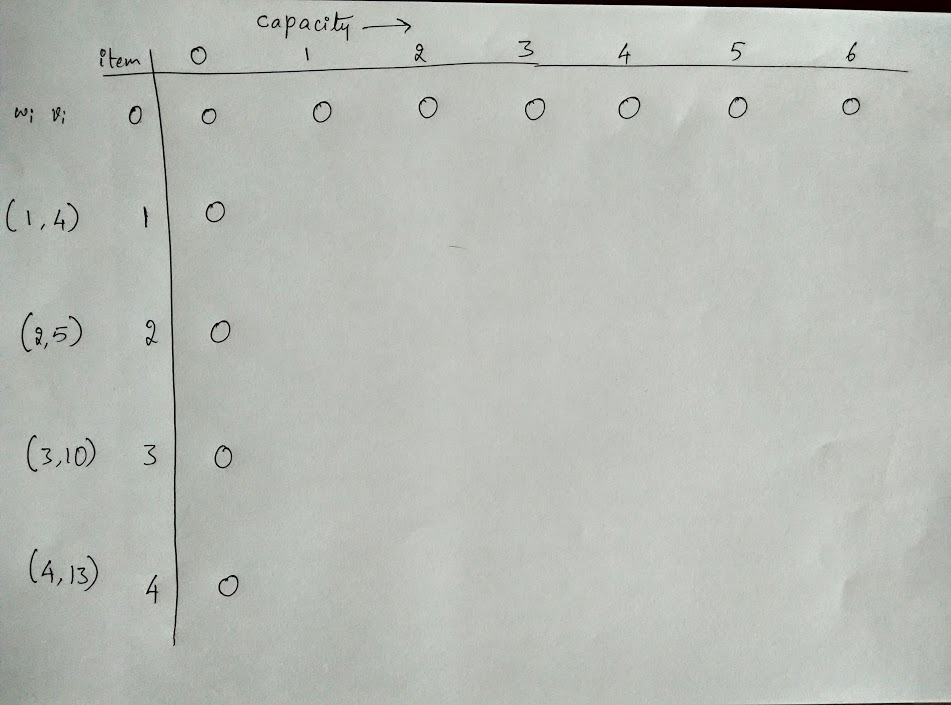 capacity →
item 0 1 2 3 4 5 6
wi vi 0 0 0 0 0 0 0 0
(1,4) 1 0
(2,5) 2 0
(3,10) 3 0
(4,13) 4 0